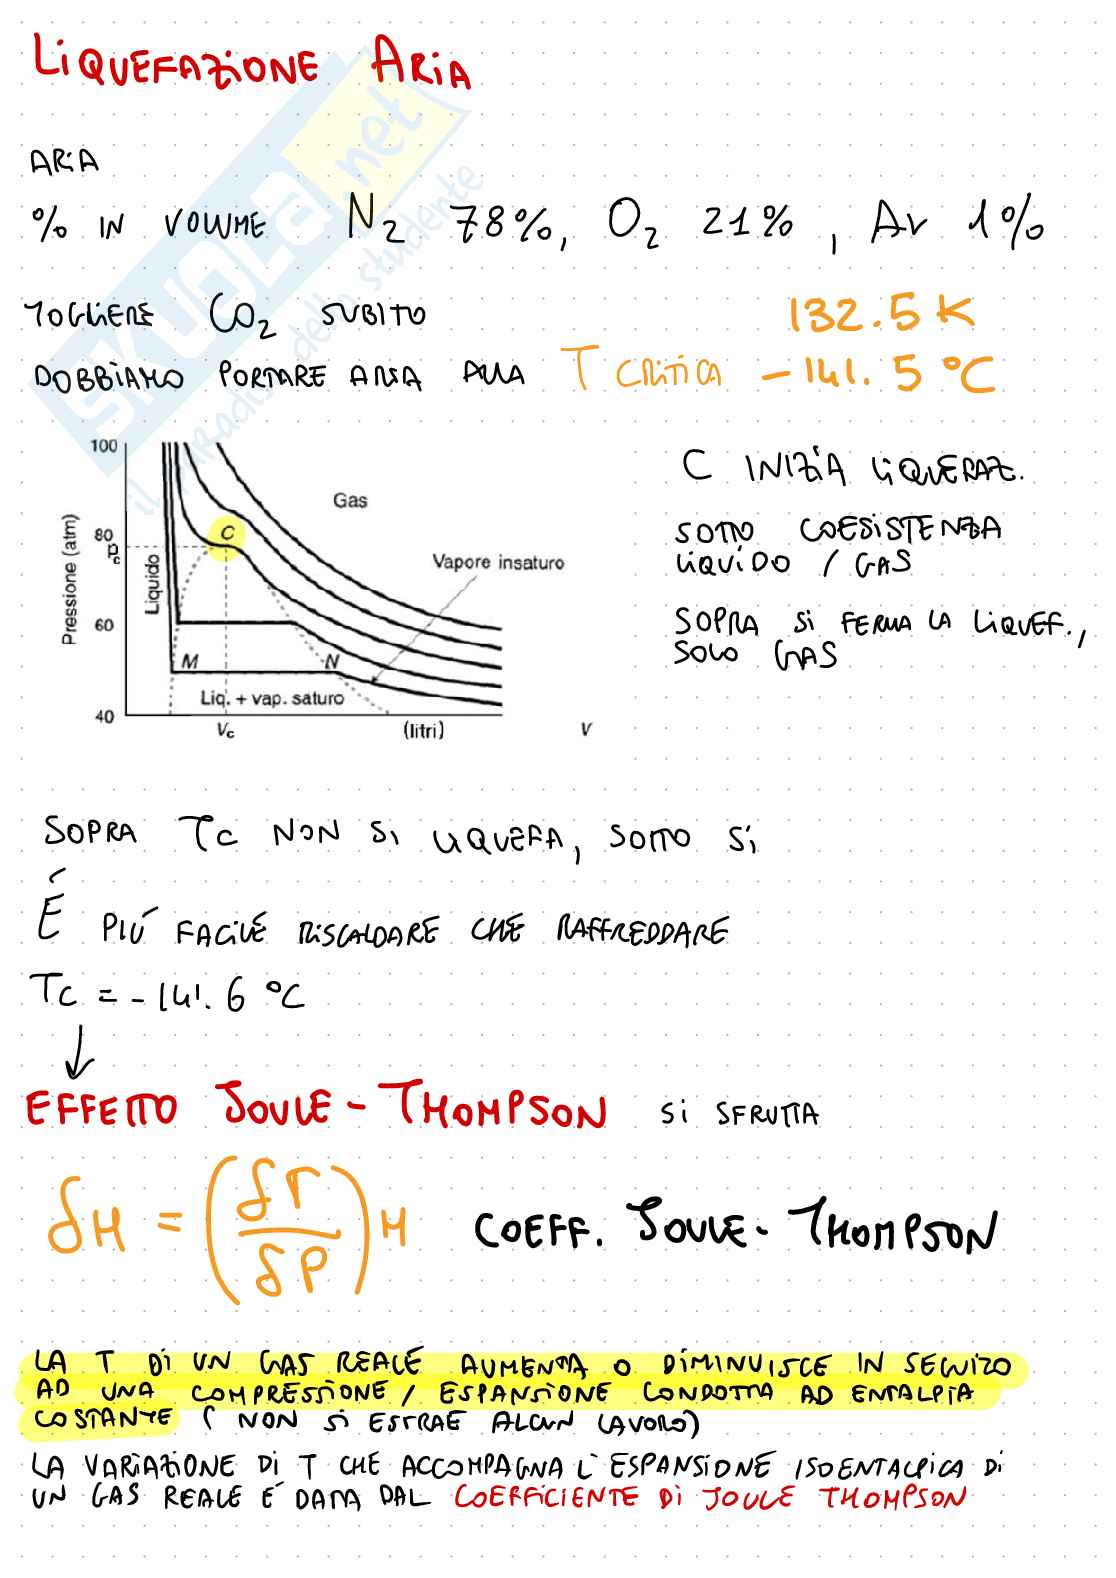 LIQUEFAZIONE ARIA
ARIA
% IN VOLUME N₂ 78%, O₂ 21%, Ar 1%
TOGLIERE CO₂ SUBITO
132.5 K
DOBBIAMO PORTARE ARIA ALLA T CRITICA -141.5 °C
SKUOLA.net
il paradiso dello studente
100
80
Pc
60
40
Pressione (atm)
Liquido
C
Gas
Vapore insaturo
M
N
Liq. + vap. saturo
Vc
(litri)
V
C INIZIA LIQUEFAZ.
SOTTO COESISTENZA
LIQUIDO / GAS
SOPRA SI FERMA LA LIQUEF.,
SOLO GAS
SOPRA TC NON SI LIQUEFA, SOTTO SI
É PIÚ FACILE RISCALDARE CHE RAFFREDDARE
TC = -141.6 °C
↓
EFFETTO JOULE-THOMPSON SI SFRUTTA
δH = (δT/δP)H COEFF. JOULE-THOMPSON
LA T DI UN GAS REALE AUMENTA O DIMINUISCE IN SEGUIZO
AD UNA COMPRESSIONE / ESPANSIONE CONDOTTA AD ENTALPIA
COSTANTE (NON SI ESTRAE ALCUN LAVORO)
LA VARIAZIONE DI T CHE ACCOMPAGNA L'ESPANSIONE ISOENTALPICA DI
UN GAS REALE É DATA DAL COEFFICIENTE DI JOULE THOMPSON